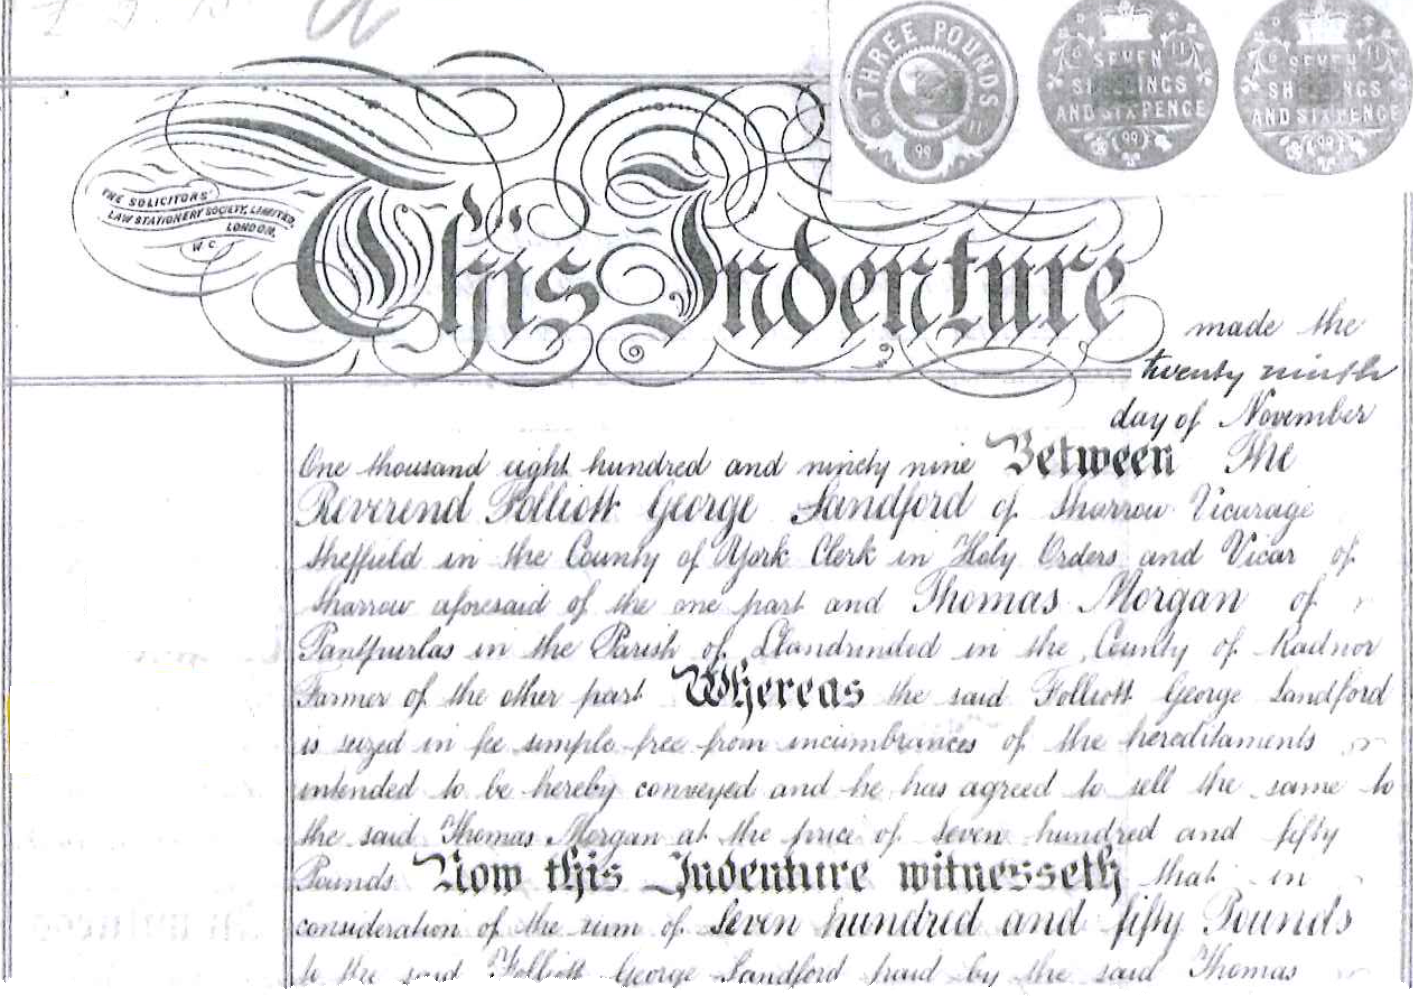 THREE POUNDS
6 11
99
6 11
SEVEN
SHILLINGS
AND SIXPENCE
99
6 11
SEVEN
SHILLINGS
AND SIXPENCE
99
THE SOLICITORS'
LAW STATIONERY SOCIETY, LIMITED,
LONDON.
W C
This Indenture
made the
twenty ninth
day of November
One thousand eight hundred and ninety nine Between The
Reverend Folliott George Sandford of Sharrow Vicarage
Sheffield in the County of York Clerk in Holy Orders and Vicar of
Sharrow aforesaid of the one part and Thomas Morgan of
Pantpurlas in the Parish of Llandrindod in the County of Radnor
Farmer of the other part Whereas the said Folliott George Sandford
is seized in fee simple free from incumbrances of the hereditaments
intended to be hereby conveyed and he has agreed to sell the same to
the said Thomas Morgan at the price of Seven hundred and fifty
Pounds Now this Indenture witnesseth that in
consideration of the sum of Seven hundred and fifty Pounds
to the said Folliott George Sandford paid by the said Thomas